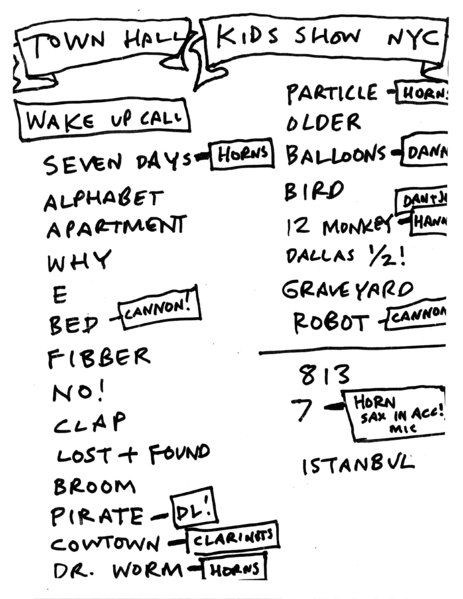 TOWN HALL KIDS SHOW NYC
WAKE UP CALL
SEVEN DAYS HORNS
ALPHABET
APARTMENT
WHY
E
BED CANNON!
FIBBER
NO!
CLAP
LOST + FOUND
BROOM
PIRATE DL!
COWTOWN CLARINETS
DR. WORM HORNS
PARTICLE HORNS
OLDER
BALLOONS DANN
BIRD
12 MONKEY HANN
DALLAS 1/2!
GRAVEYARD
ROBOT CANNON
813
7 HORN
SAX IN ACC!
MIC
ISTANBUL